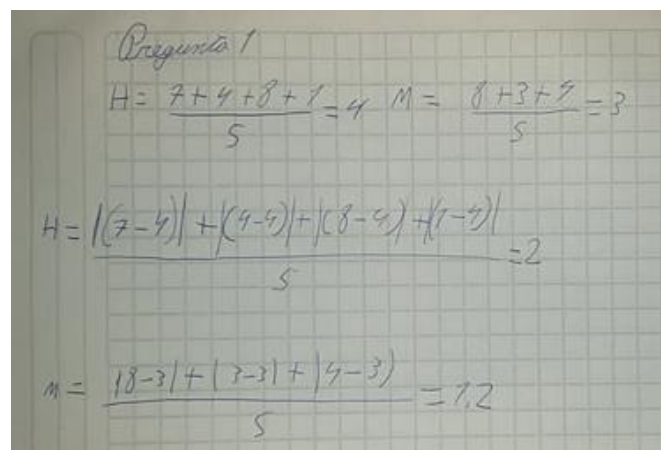 Pregunta 1
H = (7+4+8+1)/5 = 4 M = (8+3+4)/5 = 3
H = (|(7-4)|+|(4-4)|+|(8-4)|+|(1-4)|)/5 = 2
M = (|8-3|+|3-3|+|4-3|)/5 = 1,2